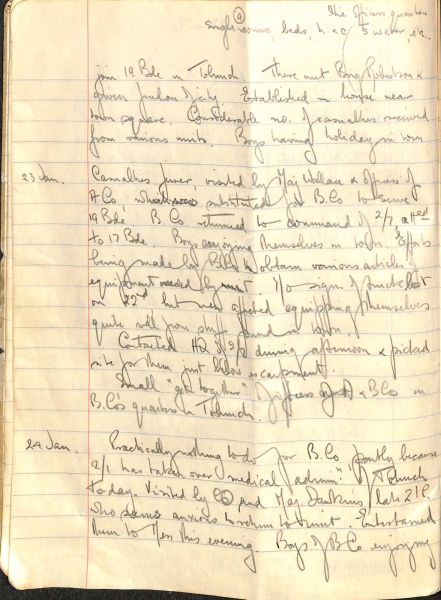 (9) The officers quarters
single rooms, beds, h & c water, etc.
join 19 Bde in Tobruch. There met Brig Robertson &
given freedom of city. Established in house near
town square. Considerable no. of casualties received
from various units. Boys having holiday in town
23 Jan. Casualties fewer, visited by Maj Wallace & officers of
A Co. substituted for B Co to serve
19 Bde. B Co. returned to command of 2/7, att'ed
to 17 Bde. Boys enjoying themselves in town. Efforts
being made by to obtain various articles of
equipment needed by unit. No sign of trucks lost
on 22nd but men affected equipping themselves
quite well from stuff found in town.
Contacted HQ of 2/2 during afternoon & picked
site for them just below escarpment.
Small "get together" of officers of A & B Co in
B Co's quarters in Tobruch.
24 Jan. Practically nothing to do for B. Co partly because
2/1 has taken over medical "admin" of Tobruch
today. Visited by CO and Maj late 2IC
who seems anxious to return to unit. Entertained
them to Mess this evening. Boys of B Co enjoying